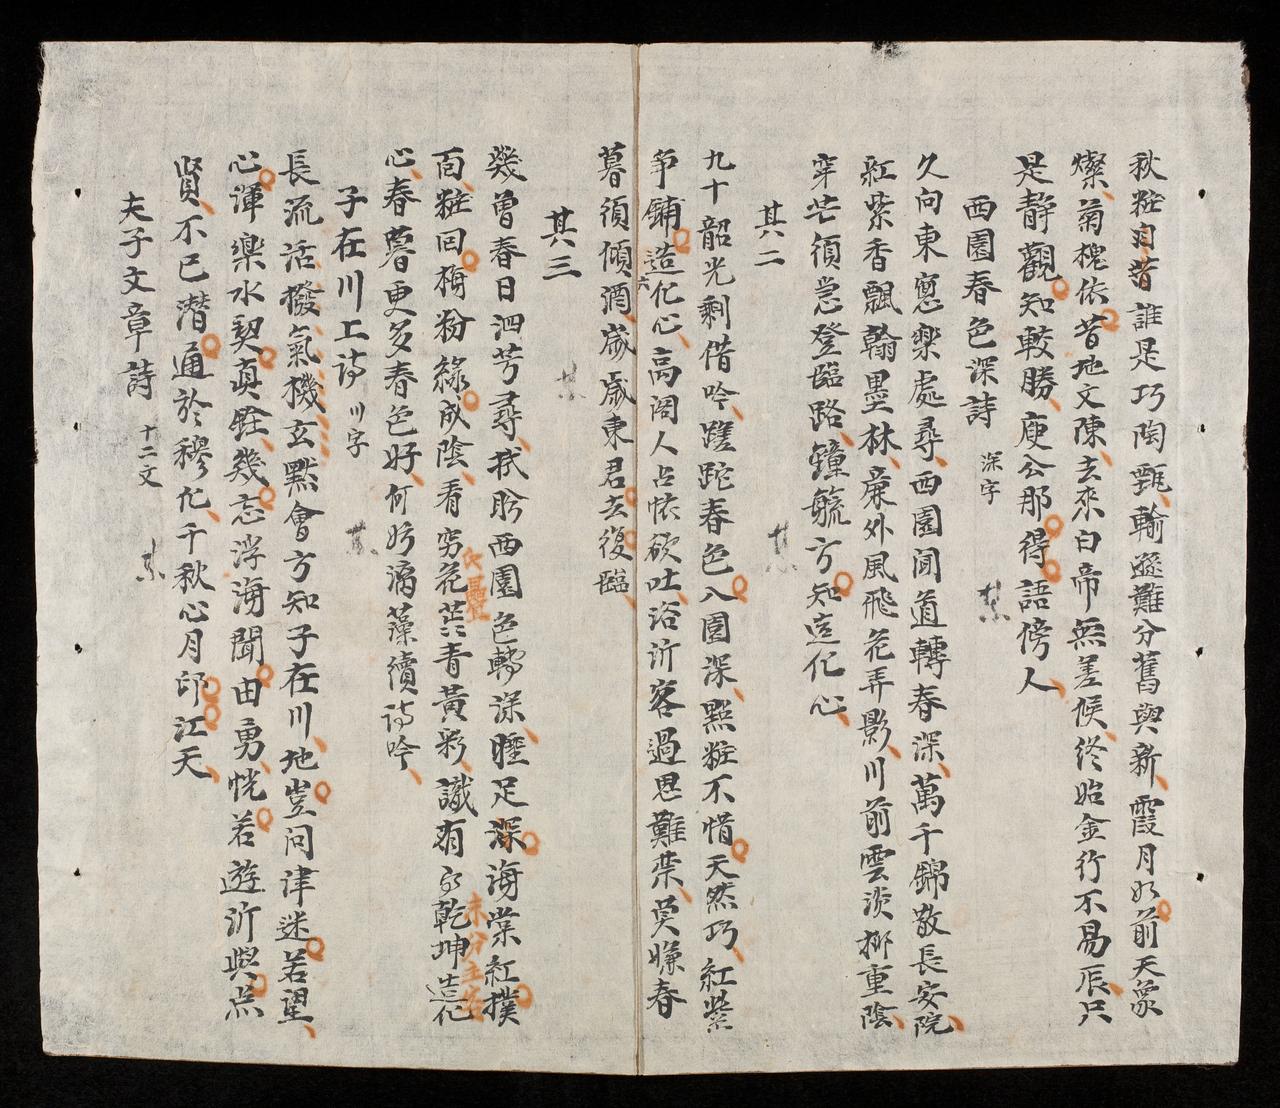 秋粧自昔誰是巧陶甄輸遜難分舊與新霞月如前天象
燦菊槐依昔地文陳去來白帝無差候終始金行不易辰只
是静觀知較勝庾公那得語傍人
西園春色深詩 深字
久向東窓樂處尋西園闻道轉春深萬千錦敬長安院
紅紫香飄翰墨林簾外風飛花弄影川前雲淡柳重陰
穿芒須急登臨路鐘毓方知造化心
其二
九十韶光剩借吟蹉跎春色入園深點粧不惜天然巧紅紫
争鋪造化心高闭人占懷欲吐浴沂客過思難禁莫嫌春
暮須傾酒歲歲東君去復臨
其三
幾曾春日泗芳尋拭眸西園色轉深睡足深海棠紅撲
面粧回梅粉緑成陰看穷花芸青黃彩識有乾坤造化
心春暮更多春色好何妨漓藻續詩吟
氏畾壁
未分主答
子在川上詩 川字
長流活撥氣機玄默會方知子在川地豈问津迷若望
心渾樂水契真銓幾忘浮海聞由勇恍若遊沂與点
賢不已潜通於穆化千秋心月印江天
夫子文章詩 十二文